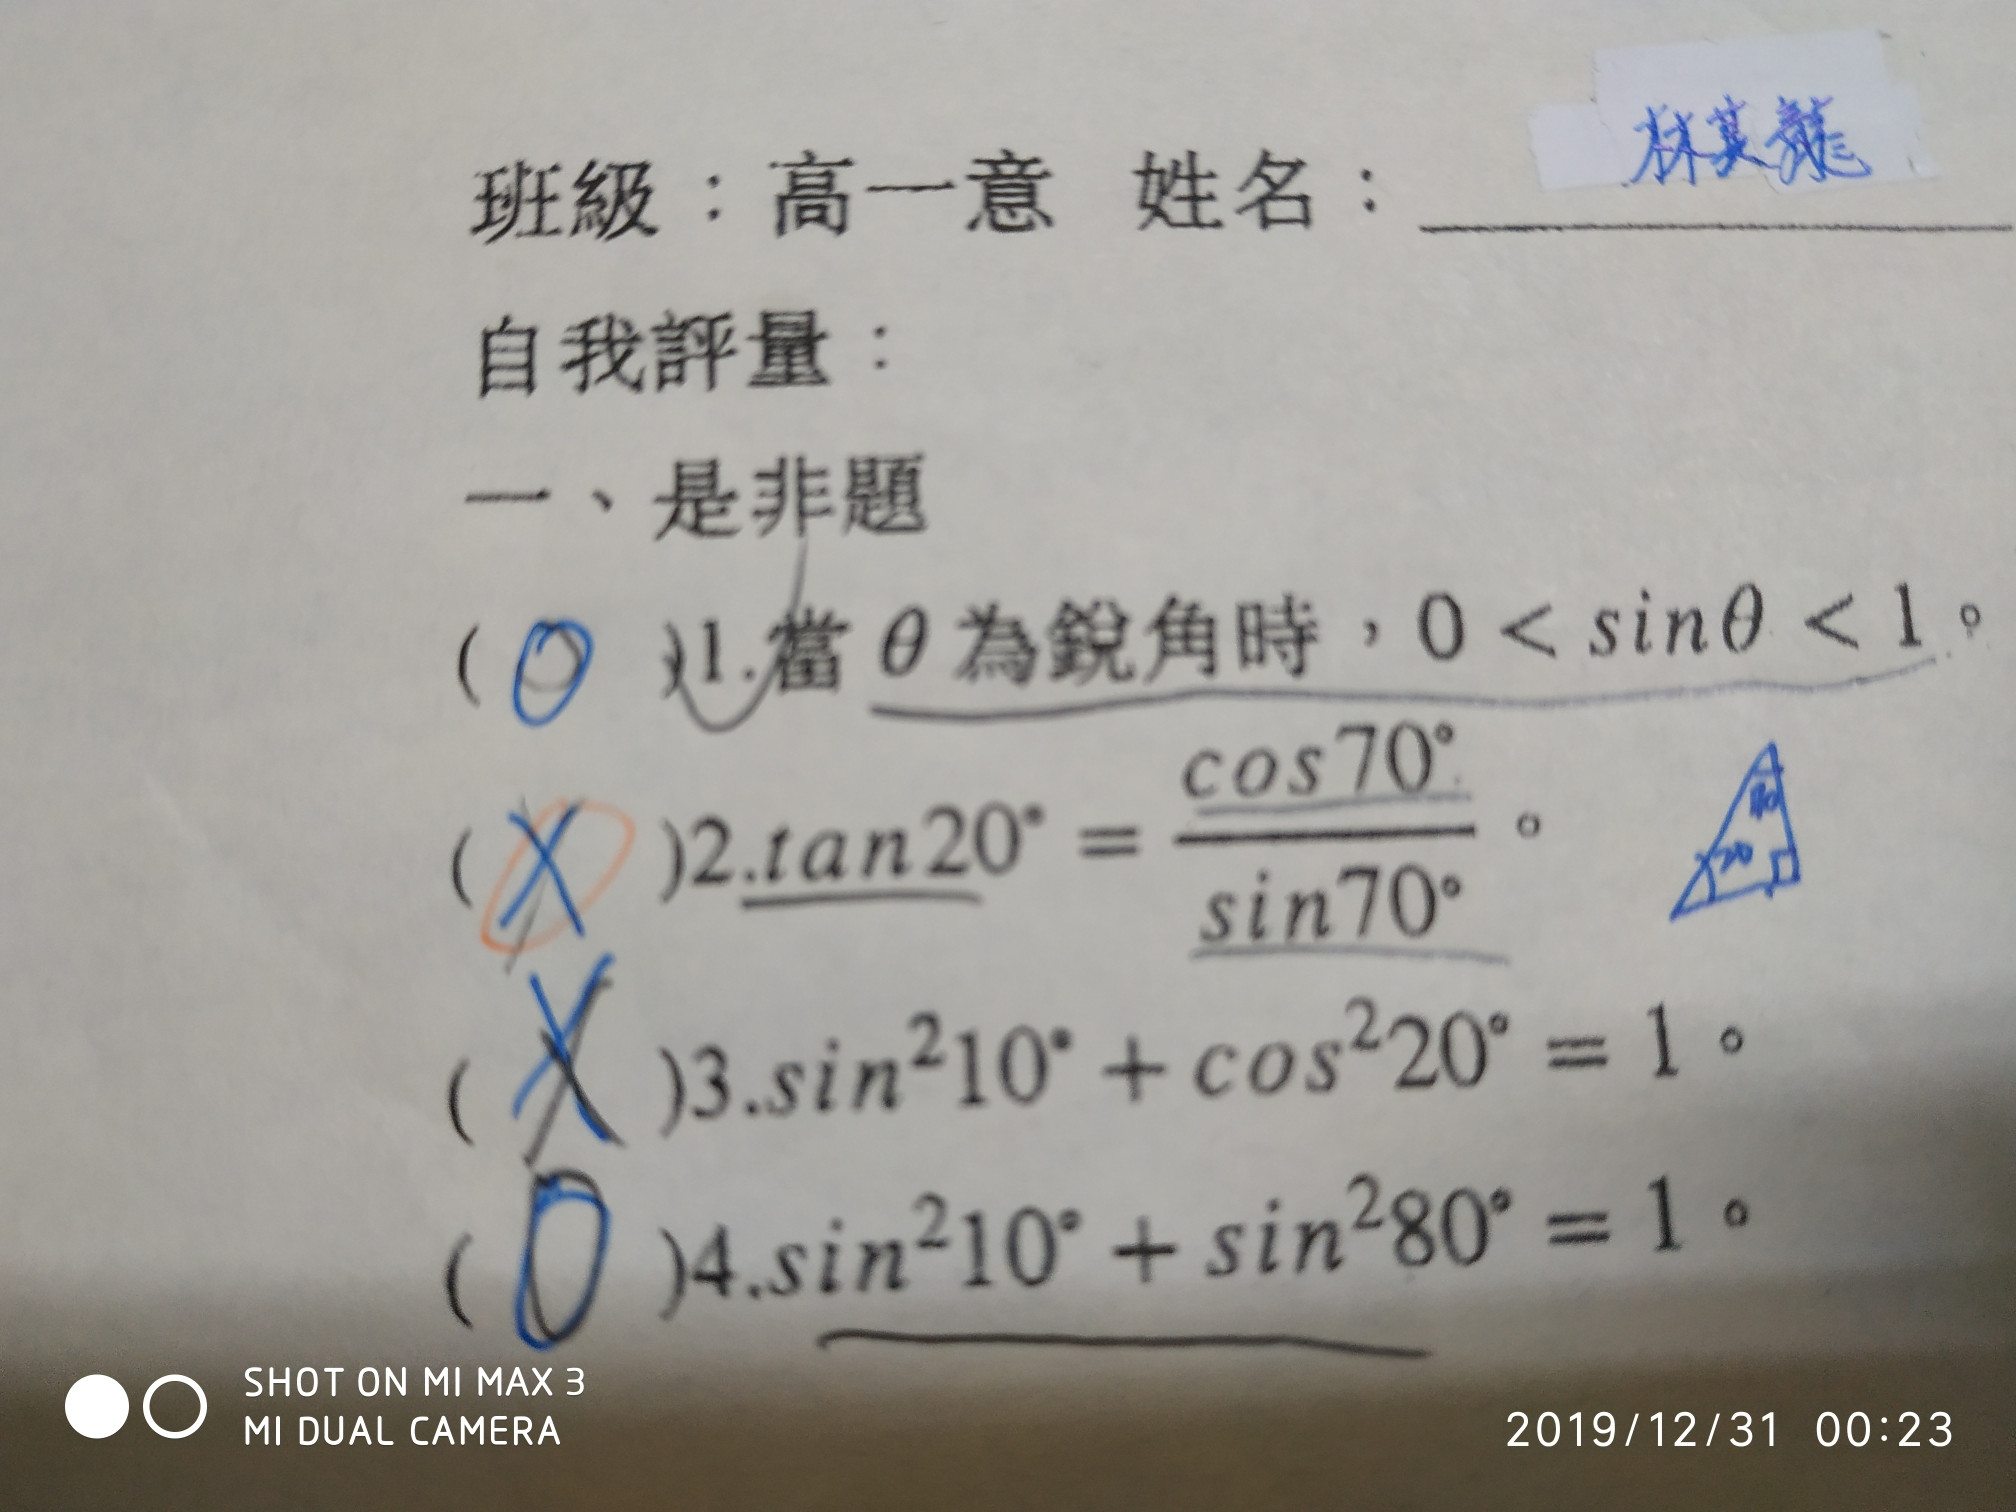 林英龍
班級：高一意 姓名：
自我評量：
一、是非題
( O )1.當 θ 為銳角時，0 < sinθ < 1。
( X )2.tan20° = cos70° / sin70°。
20
( X )3.sin²10° + cos²20° = 1。
( O )4.sin²10° + sin²80° = 1。
SHOT ON MI MAX 3
MI DUAL CAMERA
2019/12/31 00:23